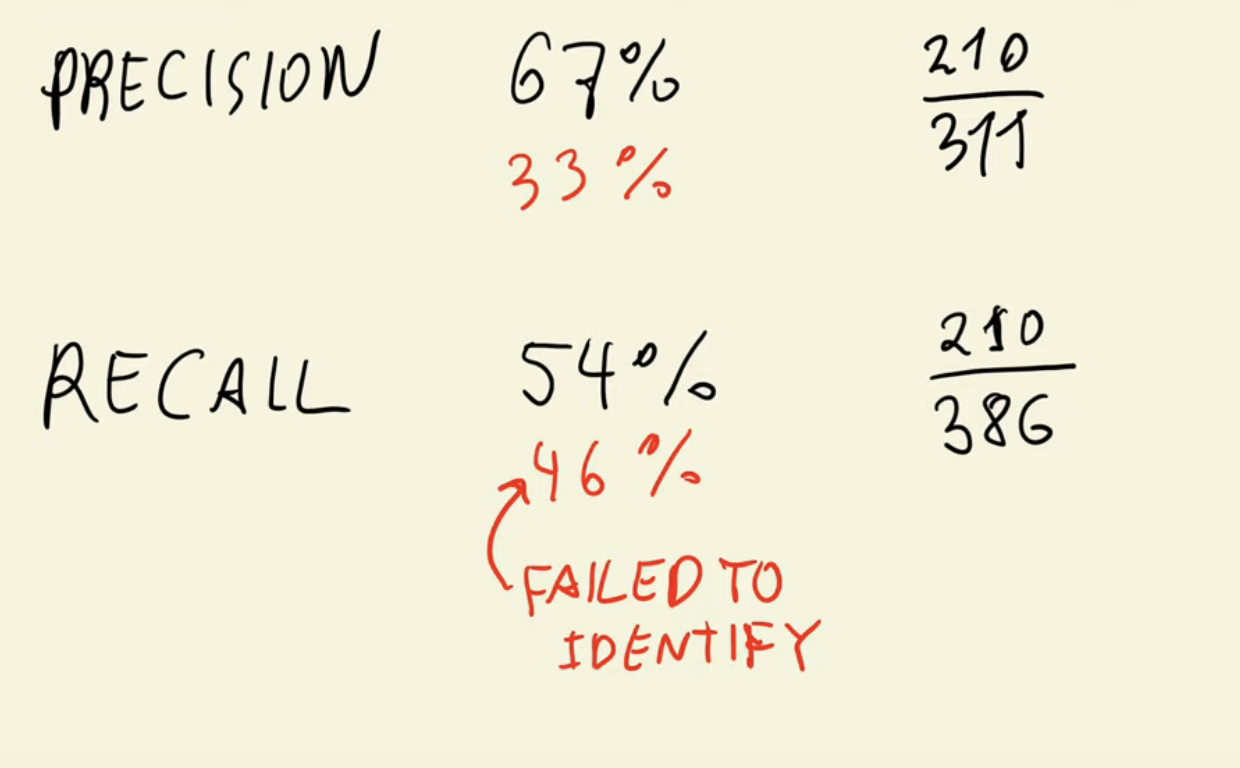 PRECISION 67% 210
33% 311
RECALL 54% 210
46% 386
FAILED TO
IDENTIFY